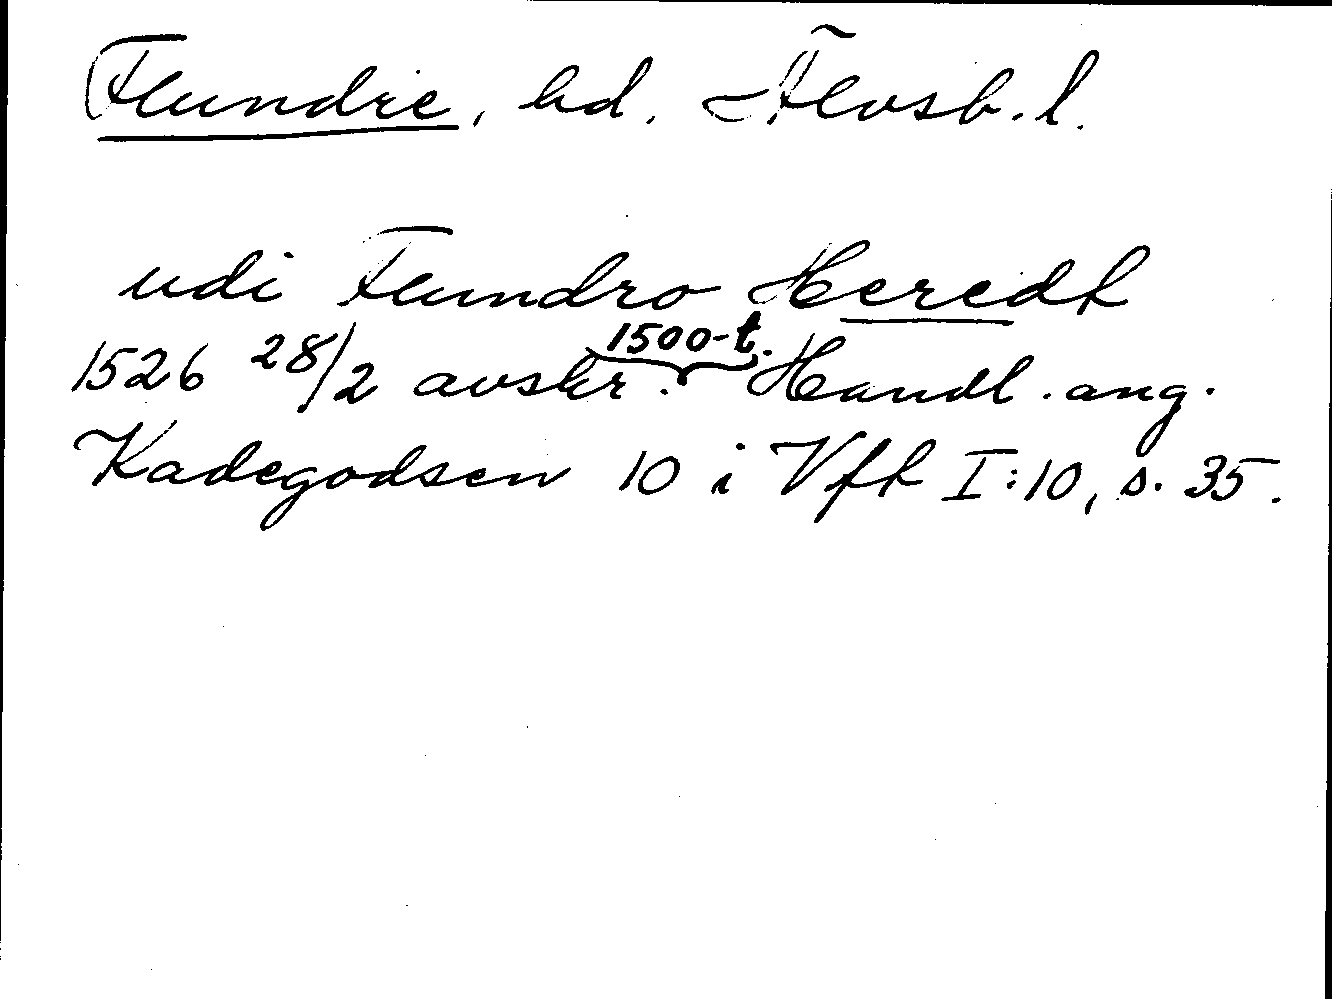 Flundre, hd. Älvsb. l.
udi Flundro Heredh
1500-t.
1526 28/2 avskr. Handl. ang.
Kadegodsen 10 i Vfh I:10, s. 35.